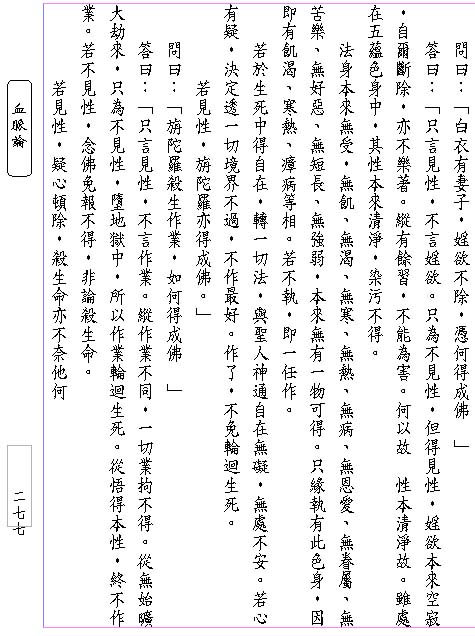 問曰：「白衣有妻子，婬欲不除，憑何得成佛　」
答曰：「只言見性，不言婬欲。只為不見性，但得見性，婬欲本來空寂
，自爾斷除，亦不樂著。縱有餘習，不能為害。何以故　性本清淨故。雖處
在五蘊色身中，其性本來清淨，染污不得。
法身本來無受，無飢、無渴、無寒、無熱、無病、無恩愛、無眷屬、無
苦樂、無好惡、無短長、無強弱，本來無有一物可得。只緣執有此色身，因
即有飢渴、寒熱、瘴病等相。若不執，即一任作。
若於生死中得自在，轉一切法，與聖人神通自在無礙，無處不安。若心
有疑，決定透一切境界不過，不作最好。作了，不免輪迴生死。
若見性，旃陀羅亦得成佛。」
問曰：「旃陀羅殺生作業，如何得成佛　」
答曰：「只言見性，不言作業。縱作業不同，一切業拘不得。從無始曠
大劫來，只為不見性，墮地獄中，所以作業輪迴生死。從悟得本性，終不作
業。若不見性，念佛免報不得，非論殺生命。
若見性，疑心頓除，殺生命亦不奈他何
血脈論
二七七